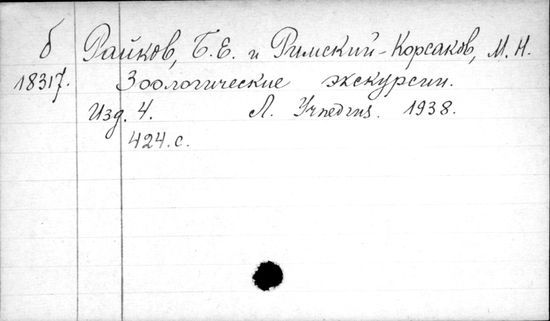 б Райков, Б.Е. и Римский-Корсаков, М.Н.
18317. Зоологические экскурсии.
Изд. 4. Л. Учпедгиз. 1938.
424 с.